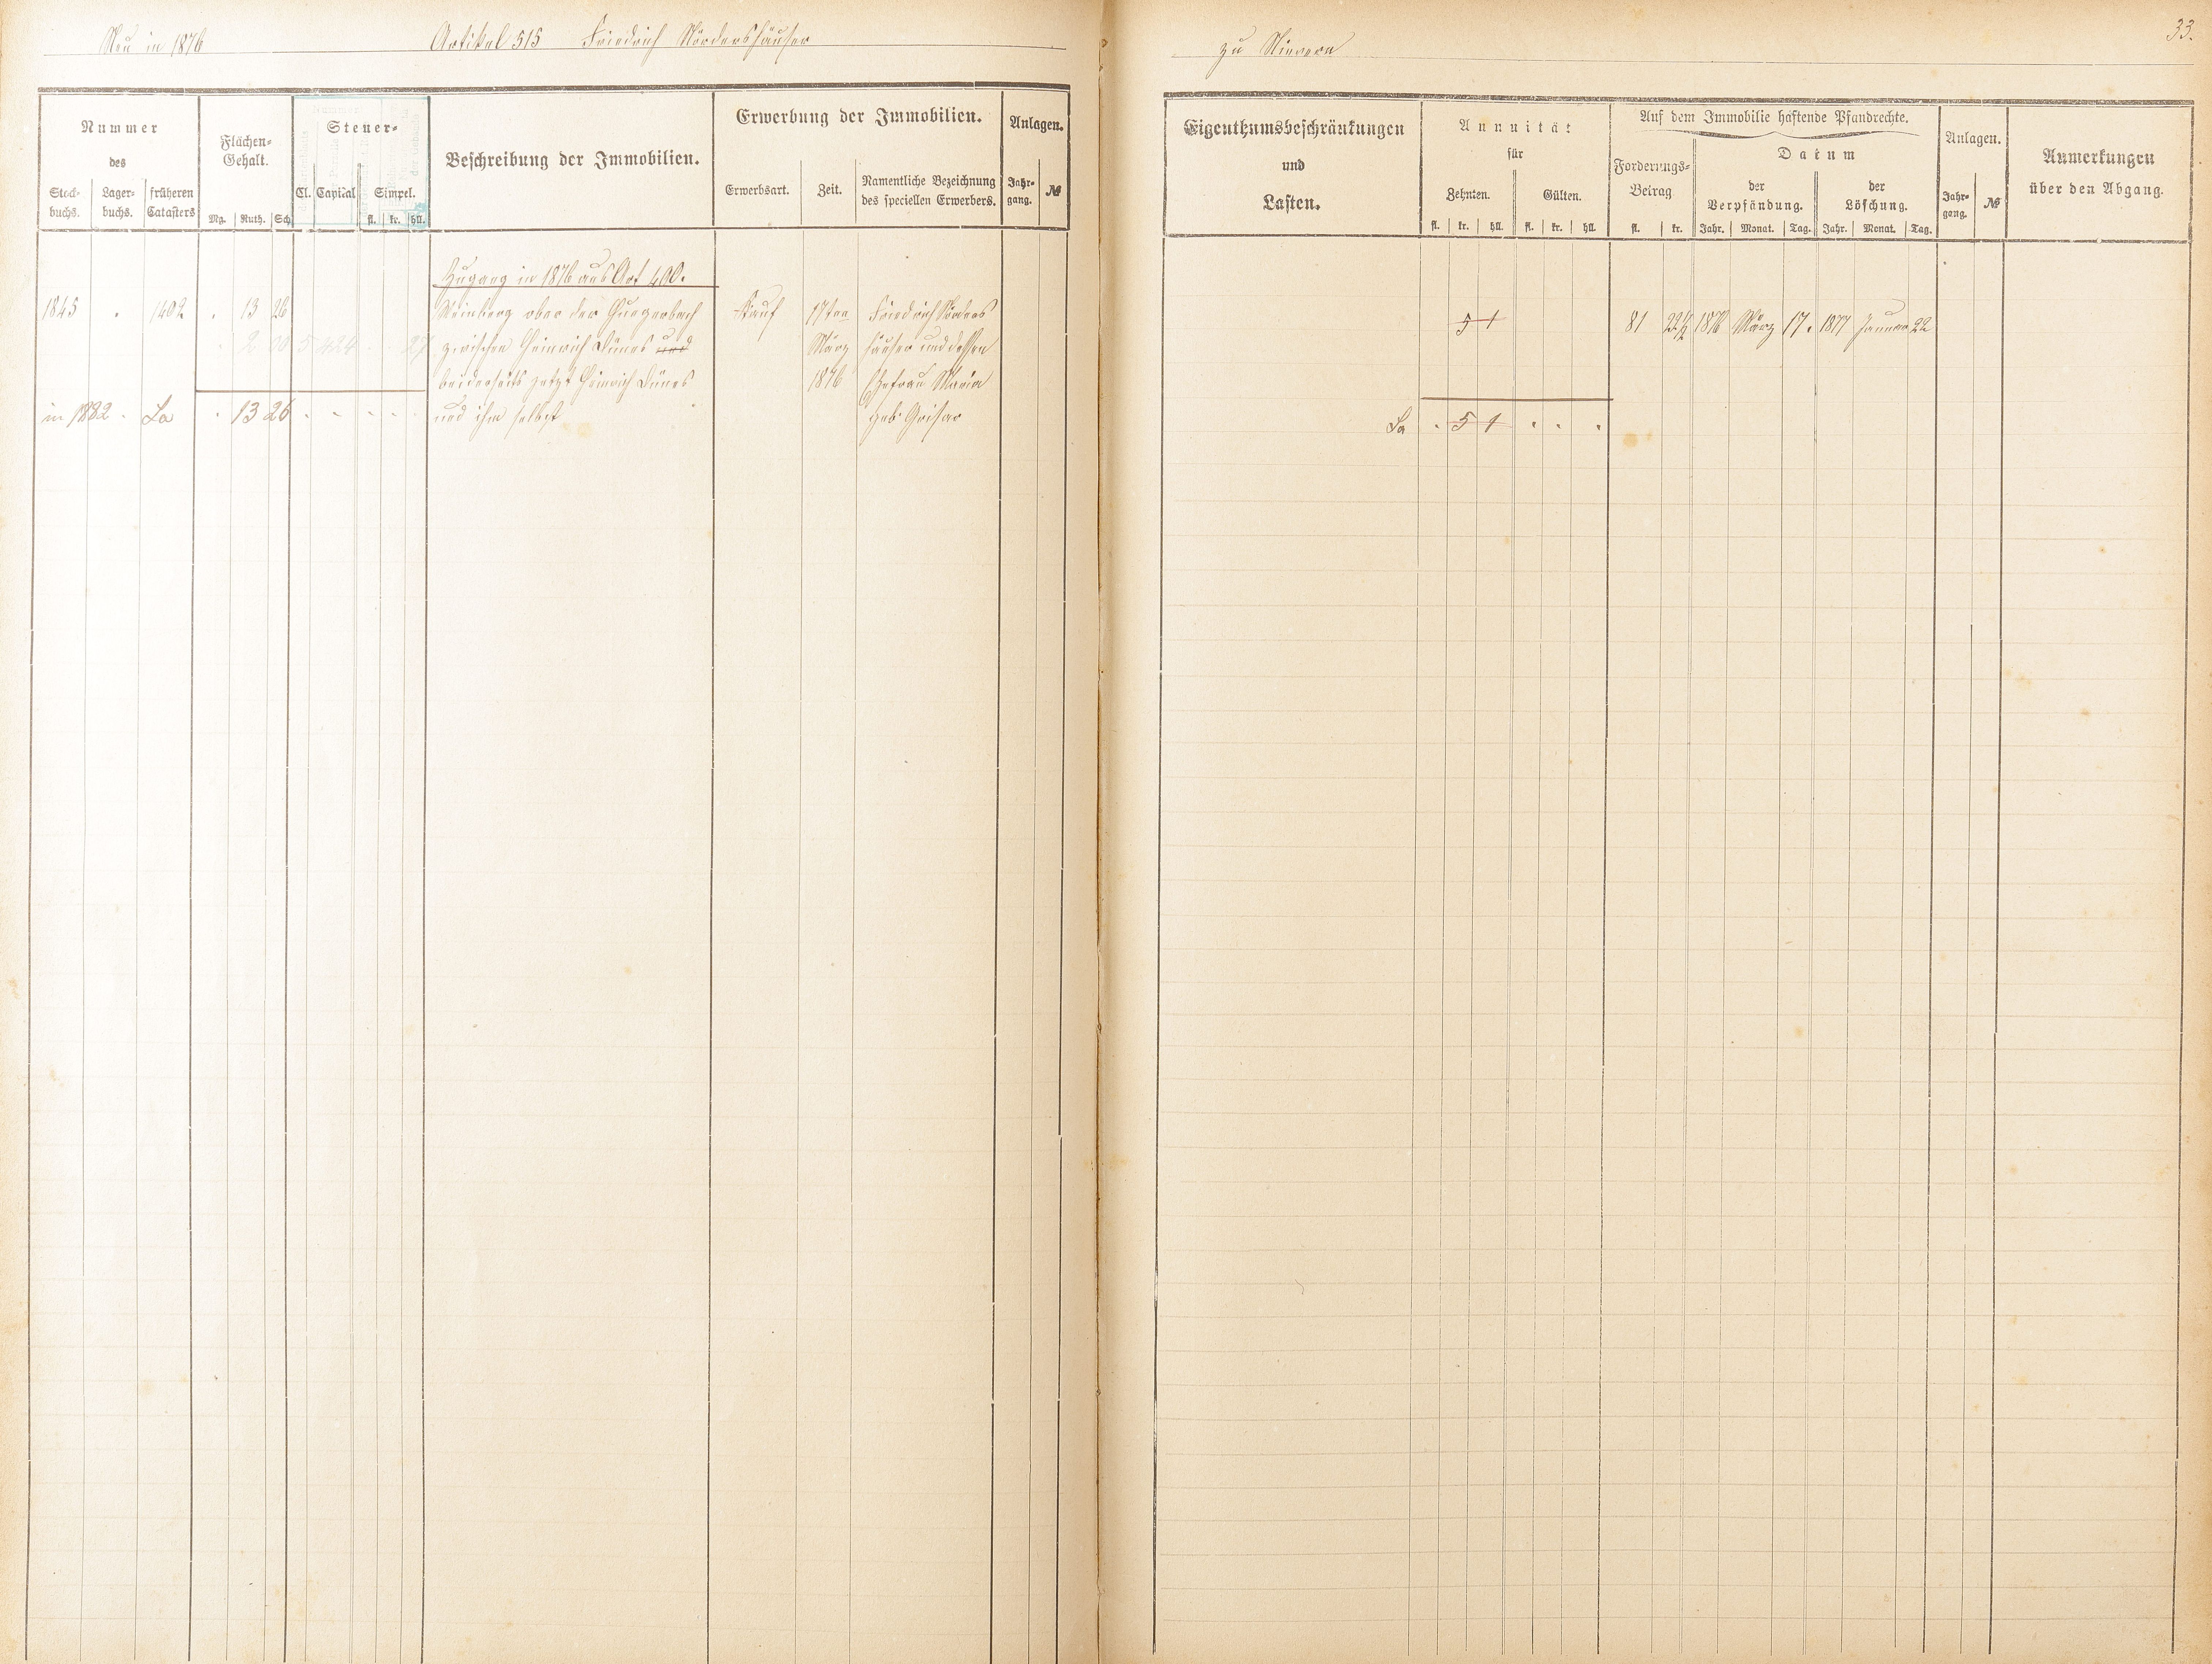 Neu in 1876 Artikel 515 Friedrich Nördershäuser
zu Nievern
33.
Nummer
des
Stock-
buchs.
Lager-
buchs.
früheren
Catasters
Flächen-
Gehalt.
Mg. Ruth. Sch.
Steuer-
Cl. Capital Simpel.
fl. kr. hll.
Beschreibung der Immobilien.
Erwerbung der Immobilien.
Erwerbsart. Zeit.
Namentliche Bezeichnung
des speciellen Erwerbers.
Anlagen.
Jahr-
gang.
№
Eigenthumsbeschränkungen
und
Lasten.
Annuität
für
Zehnten. Gülten.
fl. kr. hll. fl. kr. hll.
Auf dem Immobilie haftende Pfandrechte.
Forderungs-
Betrag
fl. kr.
Datum
der
Verpfändung.
der
Löschung.
Jahr. Monat. Tag. Jahr. Monat. Tag.
Anlagen.
Jahr-
gang.
№
Anmerkungen
über den Abgang.
Zugang in 1876 aus Art 400.
1845 . 1402 . 13 26 Weinberg ober der Kauf 17ten Friedrich Nörders
51 81 22½ 1876 März 17. 1877 Januar 22
zwischen Heinrich Dünes und März häuser und dessen
beiderseits jetzt Heinrich Dünes 1876 Ehefrau Maria
in 1882 . Sa . 13 26 . . . . . und ihm selbst geb. Grisar
Sa . 5 1 . . .